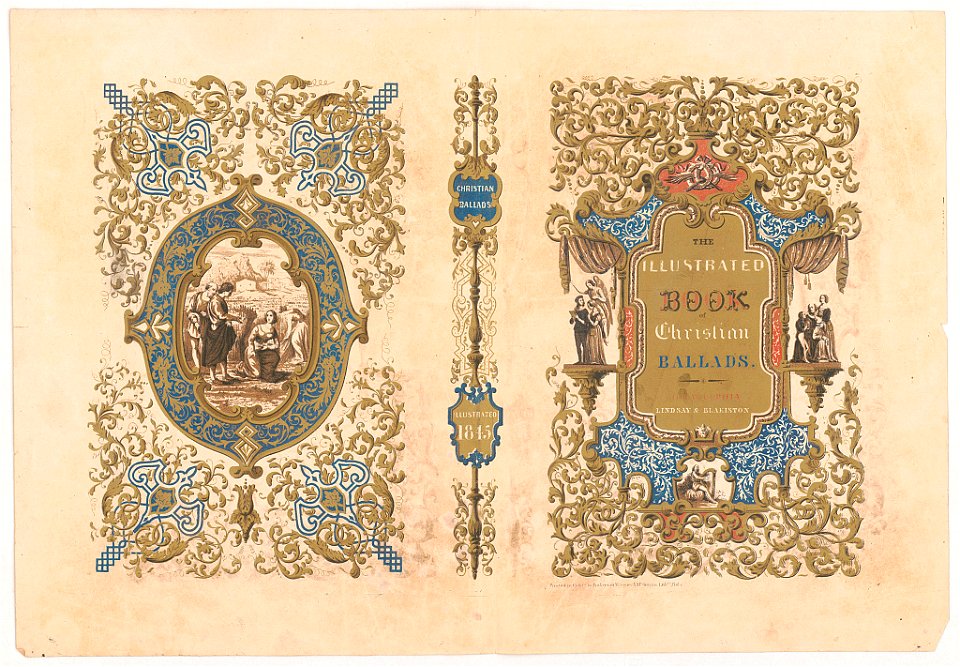 CHRISTIAN
BALLADS
ILLUSTRATED
1845
THE
ILLUSTRATED
BOOK
of
Christian
BALLADS.
LINDSAY & BLAKISTON